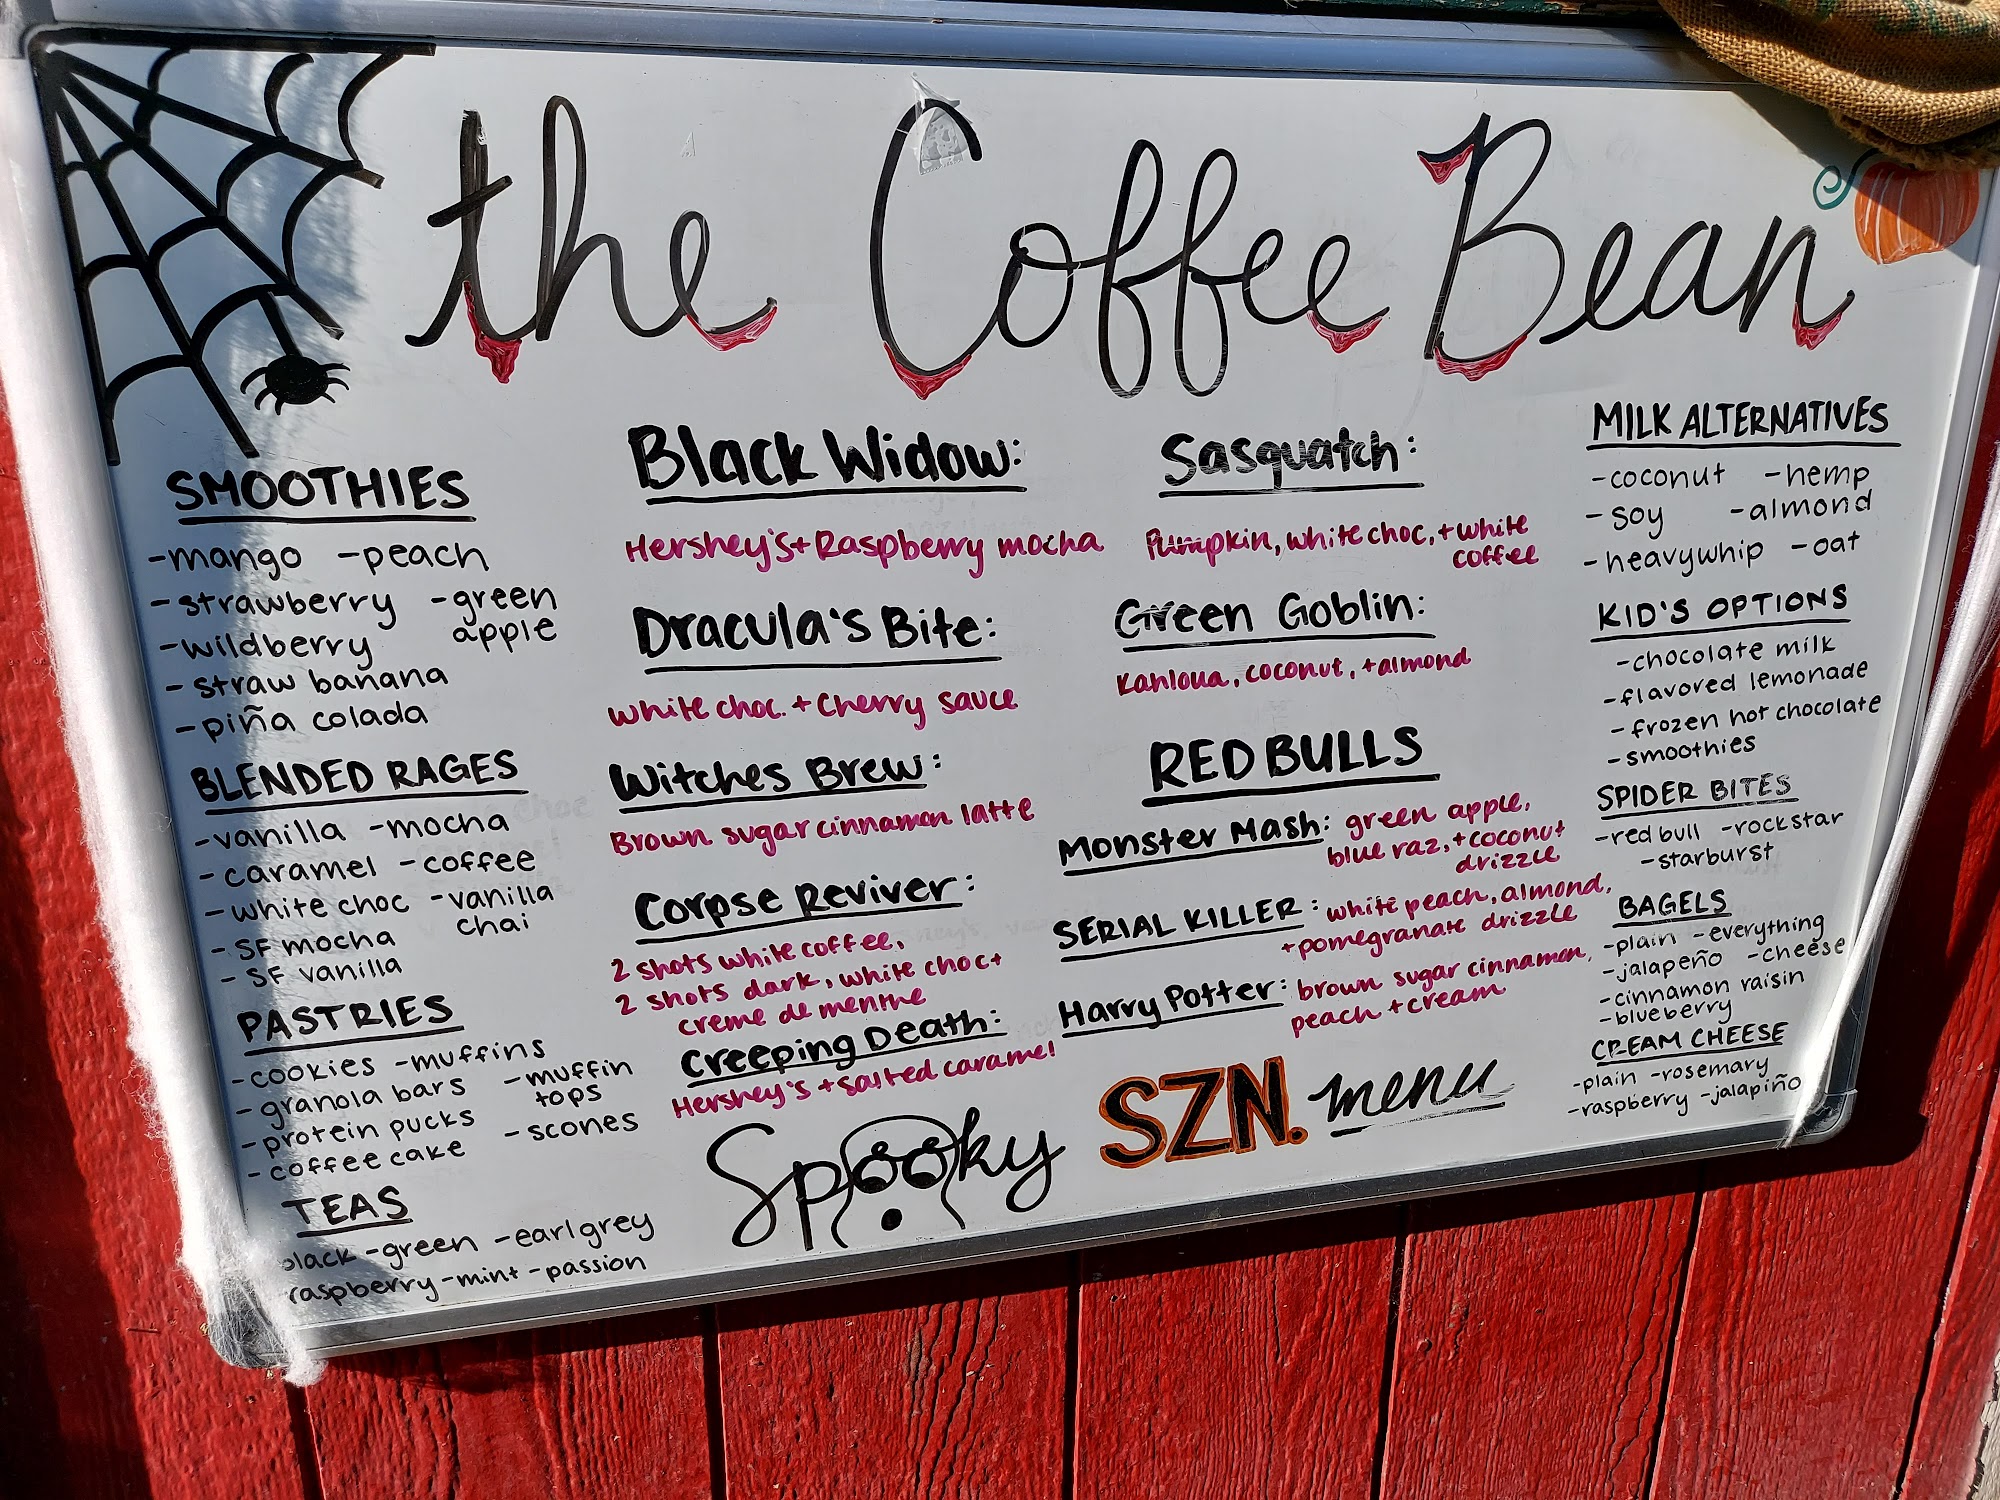 the Coffee Bean
SMOOTHIES
-mango -peach
-strawberry -green apple
-wildberry
-straw banana
-piña colada
BLENDED RAGES
-vanilla -mocha
-caramel -coffee
-white choc -vanilla chai
-SF mocha
-SF vanilla
PASTRIES
-cookies -muffins
-granola bars -muffin tops
-protein pucks
-coffee cake -scones
TEAS
black -green -earl grey
raspberry -mint -passion
Black Widow:
Hershey's + Raspberry mocha
Dracula's Bite:
white choc. + Cherry sauce
Witches Brew:
Brown sugar cinnamon latte
Corpse Reviver:
2 shots white coffee,
2 shots dark, white choc +
creme de menthe
Creeping Death:
Hershey's + salted caramel
Sasquatch:
Pumpkin, white choc, + white
coffee
Green Goblin:
Kahloua, coconut, + almond
RED BULLS
Monster Mash: green apple,
blue raz, + coconut
drizzle
SERIAL KILLER: white peach, almond,
+ pomegranate drizzle
Harry Potter: brown sugar cinnamon,
peach + cream
Spooky SZN. menu
MILK ALTERNATIVES
-coconut -hemp
-soy -almond
-heavywhip -oat
KID'S OPTIONS
-chocolate milk
-flavored lemonade
-frozen hot chocolate
-smoothies
SPIDER BITES
-red bull -rockstar
-starburst
BAGELS
-plain -everything
-jalapeño -cheese
-cinnamon raisin
-blueberry
CREAM CHEESE
-plain -rosemary
-raspberry -jalapiño